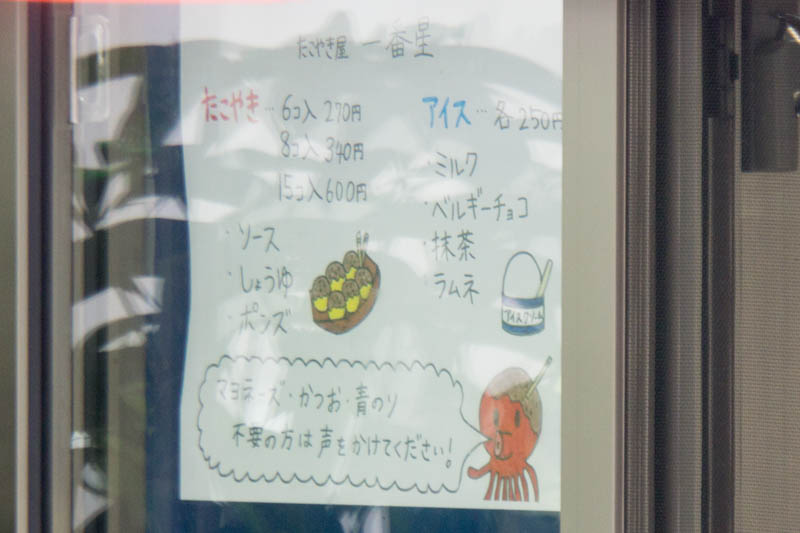 たこやき屋 一番星
たこやき… 6コ入 270円
8コ入 340円
15コ入 600円
・ソース
・しょうゆ
・ポンズ
アイス… 各250円
・ミルク
・ベルギーチョコ
・抹茶
・ラムネ
アイスクリーム
マヨネーズ・かつお・青のり
不要の方は声をかけてください!